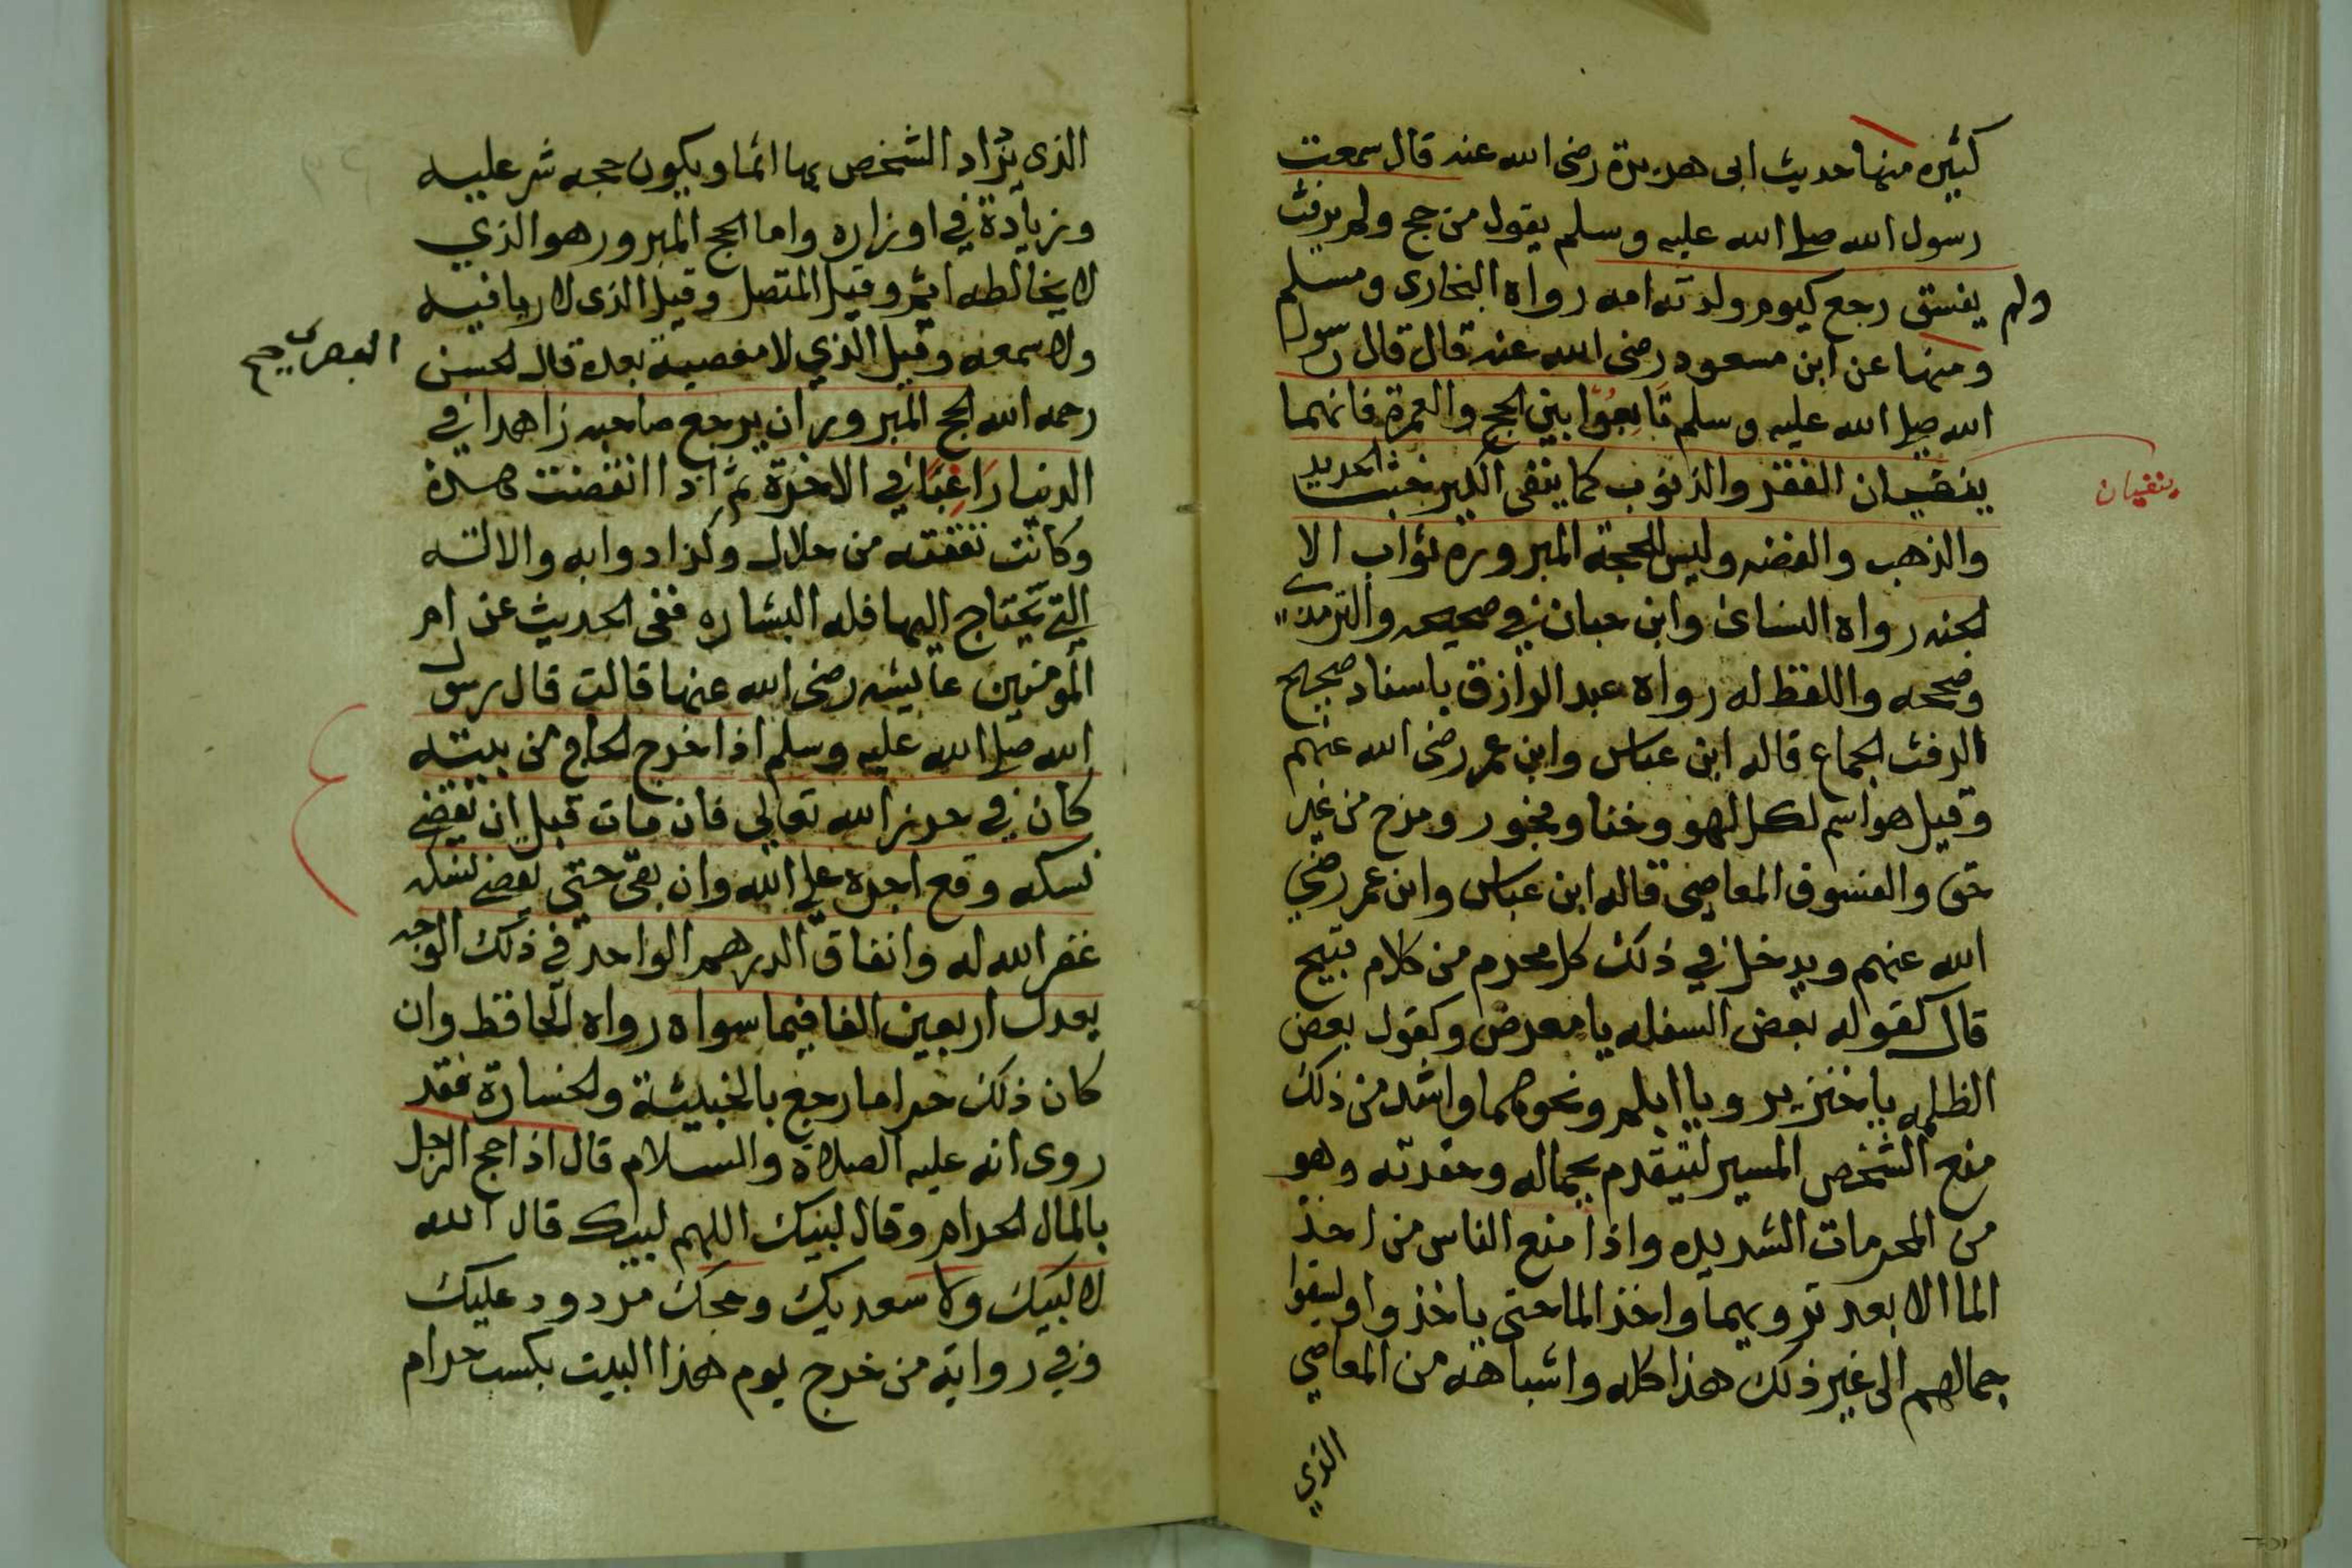 كثيره منها حديث ابى هريرة رضى الله عنه قال سمعت
رسول الله صلى الله عليه وسلم يقول من حج ولم يرفث
ولم يفسق رجع كيوم ولدته امه رواه البخارى ومسلم
ومنها عن ابن مسعود رضى الله عنه قال قال رسول
الله صلى الله عليه وسلم تَابِعُوا بين الحج والعمرة فانهما
ينفيان الفقر والذنوب كما ينفى الكير خبث الحديد
ينفيان
والذهب والفضه وليس للحجة المبروره ثواب الا
الجنه رواه النساى وابن حبان في صحيحه والترمذي
وصححه واللفظ له رواه عبد الرازق باسناد صحيح
الرفث الجماع قاله ابن عباس وابن عمر رضى الله عنهم
وقيل هو اسم لكل لهو وخنا وفجور ومزح من غير
حق والفسوق المعاصى قاله ابن عباس وابن عمر رضي
الله عنهم ويدخل في ذلك كل محرم من كلام قبيح
قال كقوله بعض السفله يا معرض وكقول بعض
الظلمه يا خنزير ويا ابلم ونحوهما واشد من ذلك
منع الشخص المسير ليتقدم بجماله وحفدته وهو
من المحرمات الشديده واذا منع الناس من اخذ
الما الا بعد ترويهما واخذ الما حتى ياخذوا وليسقوا
جمالهم الى غير ذلك هذا كله واشباهه من المعاصي
الذي
الذى يزداد الشخص بها اثما ويكون حجه شر عليه
وزيادة في اوزاره واما الحج المبرور هو الذي
لا يخالطه اثم وقيل المتصل وقيل الذى لا ريا فيه
ولا سمعه وقيل الذي لا معصية بعده قال الحسن
البصرى صح
رحمه الله الحج المبرور ان يرجع صاحبه زاهدا في
الدنيا رَاغِبًا في الاخرة ثم اذا انقضت هذه
وكانت نفقته من حلال وكذا دوابه والالته
التي يحتاج اليها فله البشاره ففى الحديث عن ام
المومنين عايشه رضى الله عنها قالت قال رسول
الله صلى الله عليه وسلم اذا خرج الحاج من بيته
كان في حرز الله تعالى فان مات قبل ان يقضي
نسكه وقع اجره على الله وان بقى حتى يقضي نسكه
غفر الله له وانفاق الدرهم الواحد في ذلك الوجه
يعدل اربعين الفا فيما سواه رواه الحافظ وان
كان ذلك حراما رجع بالخبيثة والخسارة فقد
روى انه عليه الصلاة والسلام قال اذا حج الرجل
بالمال الحرام وقال لبيك اللهم لبيك قال الله
لا لبيك ولا سعديك وحجك مردود عليك
وفي رواية من خرج يوم هذا البيت بكسب حرام